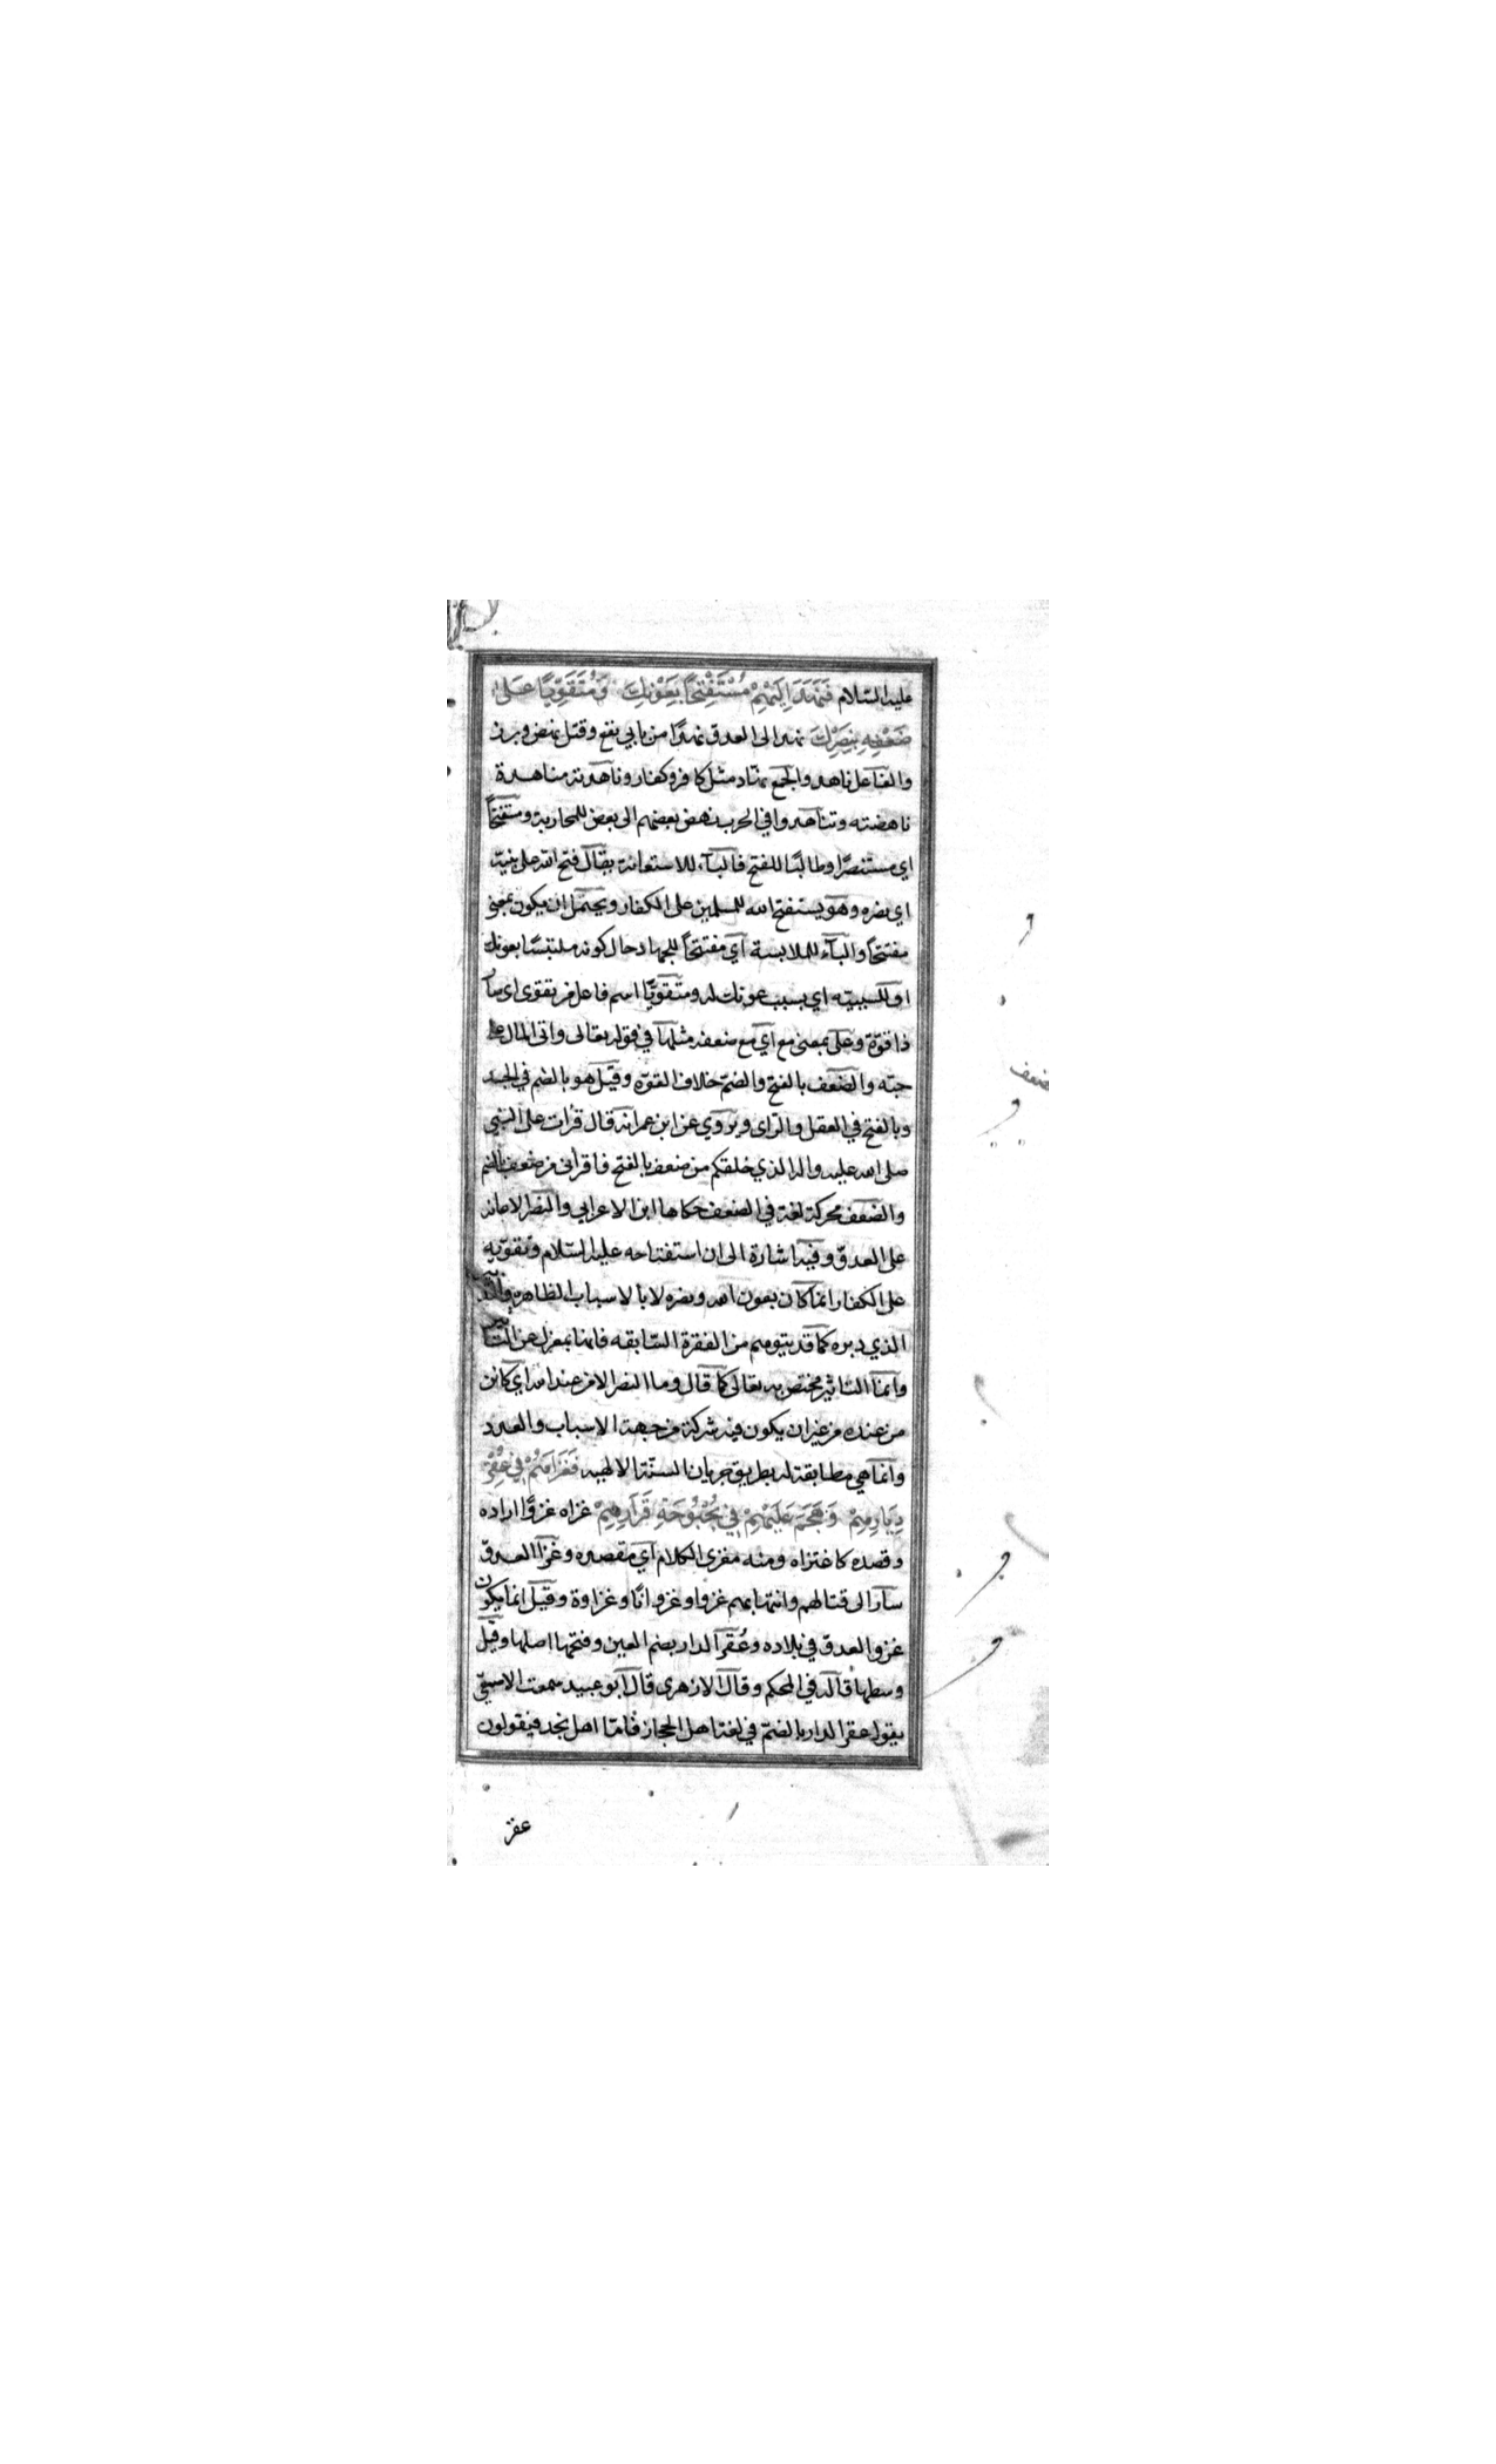 عليه السّلام فَنَهَدَ اِلَيْهِمْ مُسْتَفْتِحًا بِعَوْنِكَ وَمُتَقَوِّيًا عَلىٰ
ضَعْفِهِ بِنَصْرِكَ نهد الى العدوّ نهدًا من بابي نفع وقتل نهض وبرز
والفاعل ناهد والجمع نهّاد مثل كافر وكفار وناهدته مناهدة
ناهضته وتناهدوا في الحرب نهض بعضهم الى بعض للمحاربة ومستفتحًا
اي مستنصرًا وطالبًا للفتح فالباء للاستعانة يقال فتح الله على نبيّه
اي نصره وهو يستفتح الله للمسلمين على الكفار ويحتمل ان يكون بمعنى
مفتتحًا والباء للملابسة اي مفتتحًا للجهاد حال كونه ملتبسًا بعونك
او للسببيّه اي بسبب عونك له ومتقويًّا اسم فاعل من تقوى اي صار
ذا قوّة وعلى بمعنى مع اي مع ضعفه مثلها في قوله تعالى واتى المال على
حبّه والضعف بالفتح والضمّ خلاف القوّه وقيل هو بالضم في الجسد
وبالفتح في العقل والرّاى ويروي عن ابن عمر انه قال قرأت على النبي
صلى الله عليه واله الذي خلقكم من ضعف بالفتح فاقرأنى من ضعف بالضم
والضعف محركة لغة في الضعف حكاها ابن الاعرابي والنصر الاعانه
على العدوّ وفيه اشارة الى ان استفتاحه عليه السّلام وتقوّيه
على الكفار انما كان بعون الله ونصره لا بالاسباب الظاهره والتدبير
الذي دبره كما قد يتوهم من الفقرة السّابقه فانها بمعزل عن التاثير
وانما التاثير مختص به تعالى كما قال وما النصر الا من عند الله اي كائن
من عنده من غير ان يكون فيه شركة من جهة الاسباب والعدد
وانما هي مطابقة له بطريق جريان السنّة الالهيه فَغَزَاهُمْ فِي عُقْرِ
دِيَارِهِمْ وَهَجَمَ عَلَيْهِمْ فِي بُحْبُوحَةِ قَرَارِهِمْ غزاه غزوًا اراده
وقصده كاغتزاه ومنه مغزى الكلام اي مقصده وغزا العدوّ
سار الى قتالهم وانتهابهم غزوا وغزوانًا وغزاوة وقيل انما يكون
غزو العدوّ في بلاده وعُقر الدار بضم العين وفتحها اصلها وقيل
وسطها قاله في المحكم وقال الازهرى قال ابو عبيد سمعت الاصمعيّ
يقول عقر الدار بالضمّ في لغة اهل الحجاز فامّا اهل نجد فيقولون
عقر
ضعف